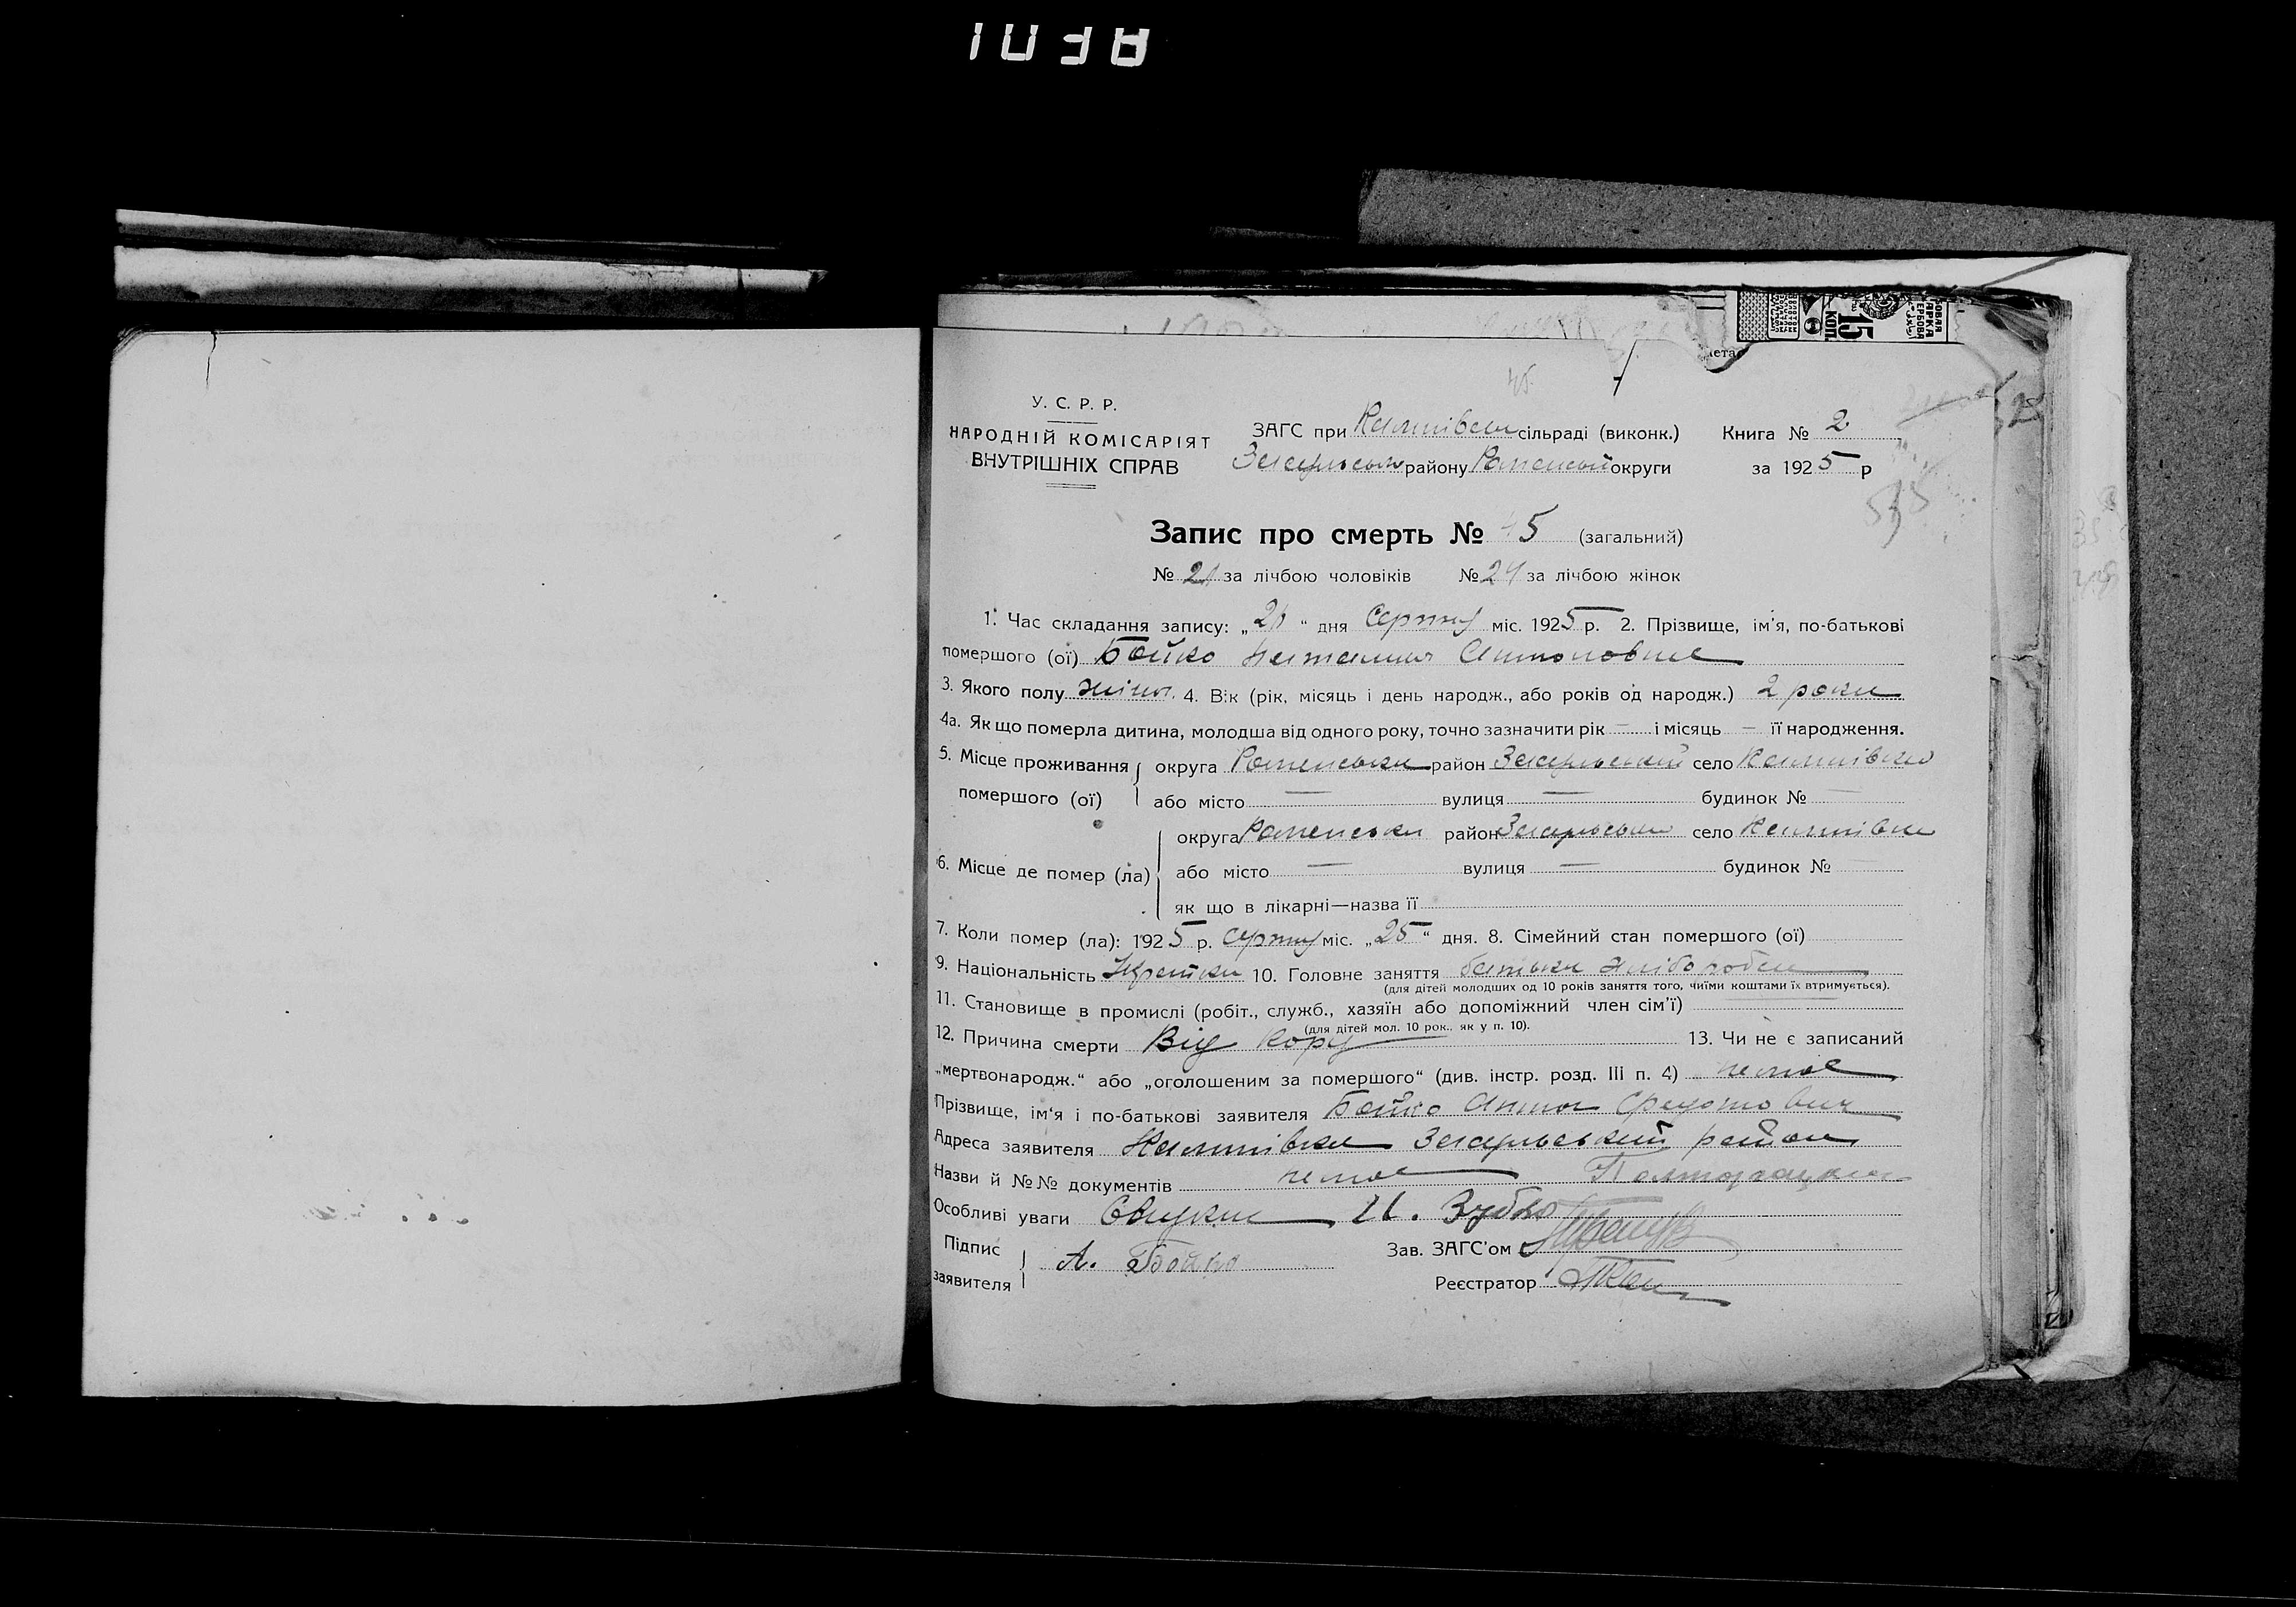 У. С. Р. Р.
НАРОДНІЙ КОМІСАРІЯТ
ВНУТРІШНІХ СПРАВ
ЗАГС при сільраді (виконк.)
району Роменської округи
Книга № 2
за 1925 р
Запис про смерть № 45 (загальний)
№ 21 за лічбою чоловіків № 24 за лічбою жінок
1. Час складання запису: „ “ дня Серпня міс. 1925 р. 2. Прізвище, ім'я, по-батькові
помершого (ої) Бойко Наталия Антоновна
3. Якого полу жіноч. 4. Вік (рік, місяць і день народж., або років од народж.) 2 роки
4а. Як що померла дитина, молодша від одного року, точно зазначити рік — і місяць — її народження.
5. Місце проживання помершого (ої) округа Роменська район Засульський село
або місто — вулиця — будинок № —
6. Місце де помер (ла) округа Роменська район Засульськи село
або місто — вулиця — будинок № —
як що в лікарні—назва її
7. Коли помер (ла): 1925 р. серпня міс. „25“ дня. 8. Сімейний стан помершого (ої)
9. Національність 10. Головне заняття батька хлібороб
(для дітей молодших од 10 років заняття того, чиїми коштами їх втримується).
11. Становище в промислі (робіт., служб., хазяїн або допоміжний член сім'ї)
(для дітей мол. 10 рок., як у п. 10).
12. Причина смерти Від кору 13. Чи не є записаний
„мертвонародж.“ або „оголошеним за помершого“ (див. інстр. розд. III п. 4) немає
Прізвище, ім'я і по-батькові заявителя Бойко Антон
Адреса заявителя Засульський район
Назви й №№ документів немає
Особливі уваги И. Зубко
Підпис заявителя А. Бойко
Зав. ЗАГС'ом
Реєстратор